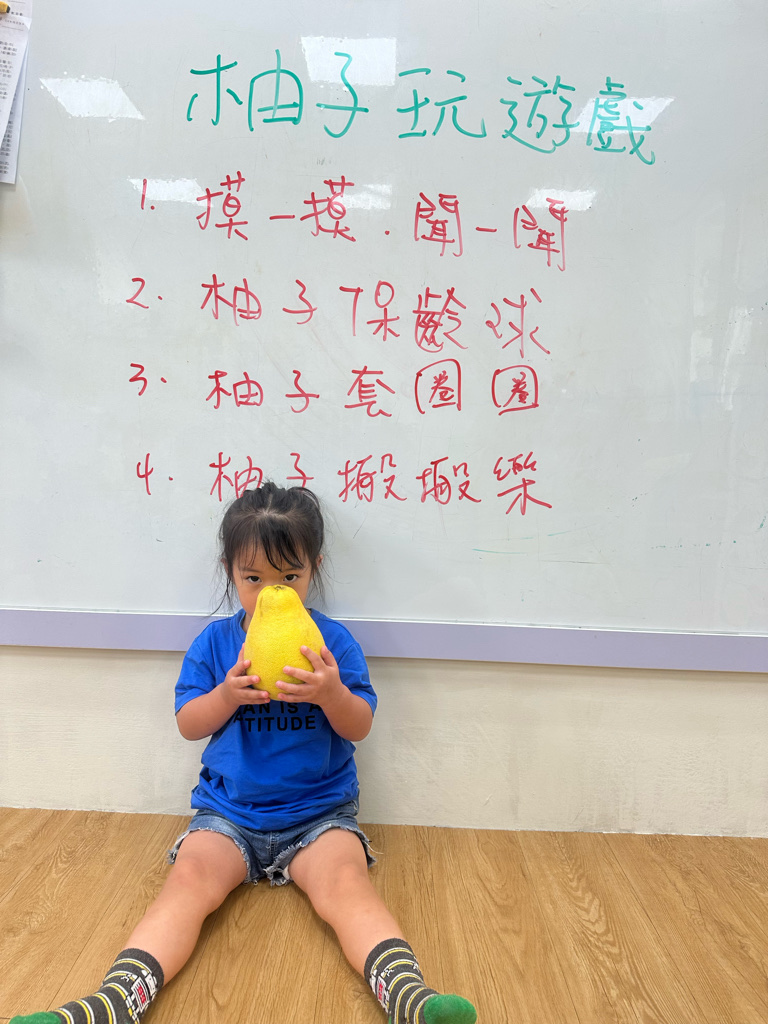 柚子玩遊戲
1. 摸一摸.聞一聞
2. 柚子保齡球
3. 柚子套圈圈
4. 柚子搬搬樂
TITUDE